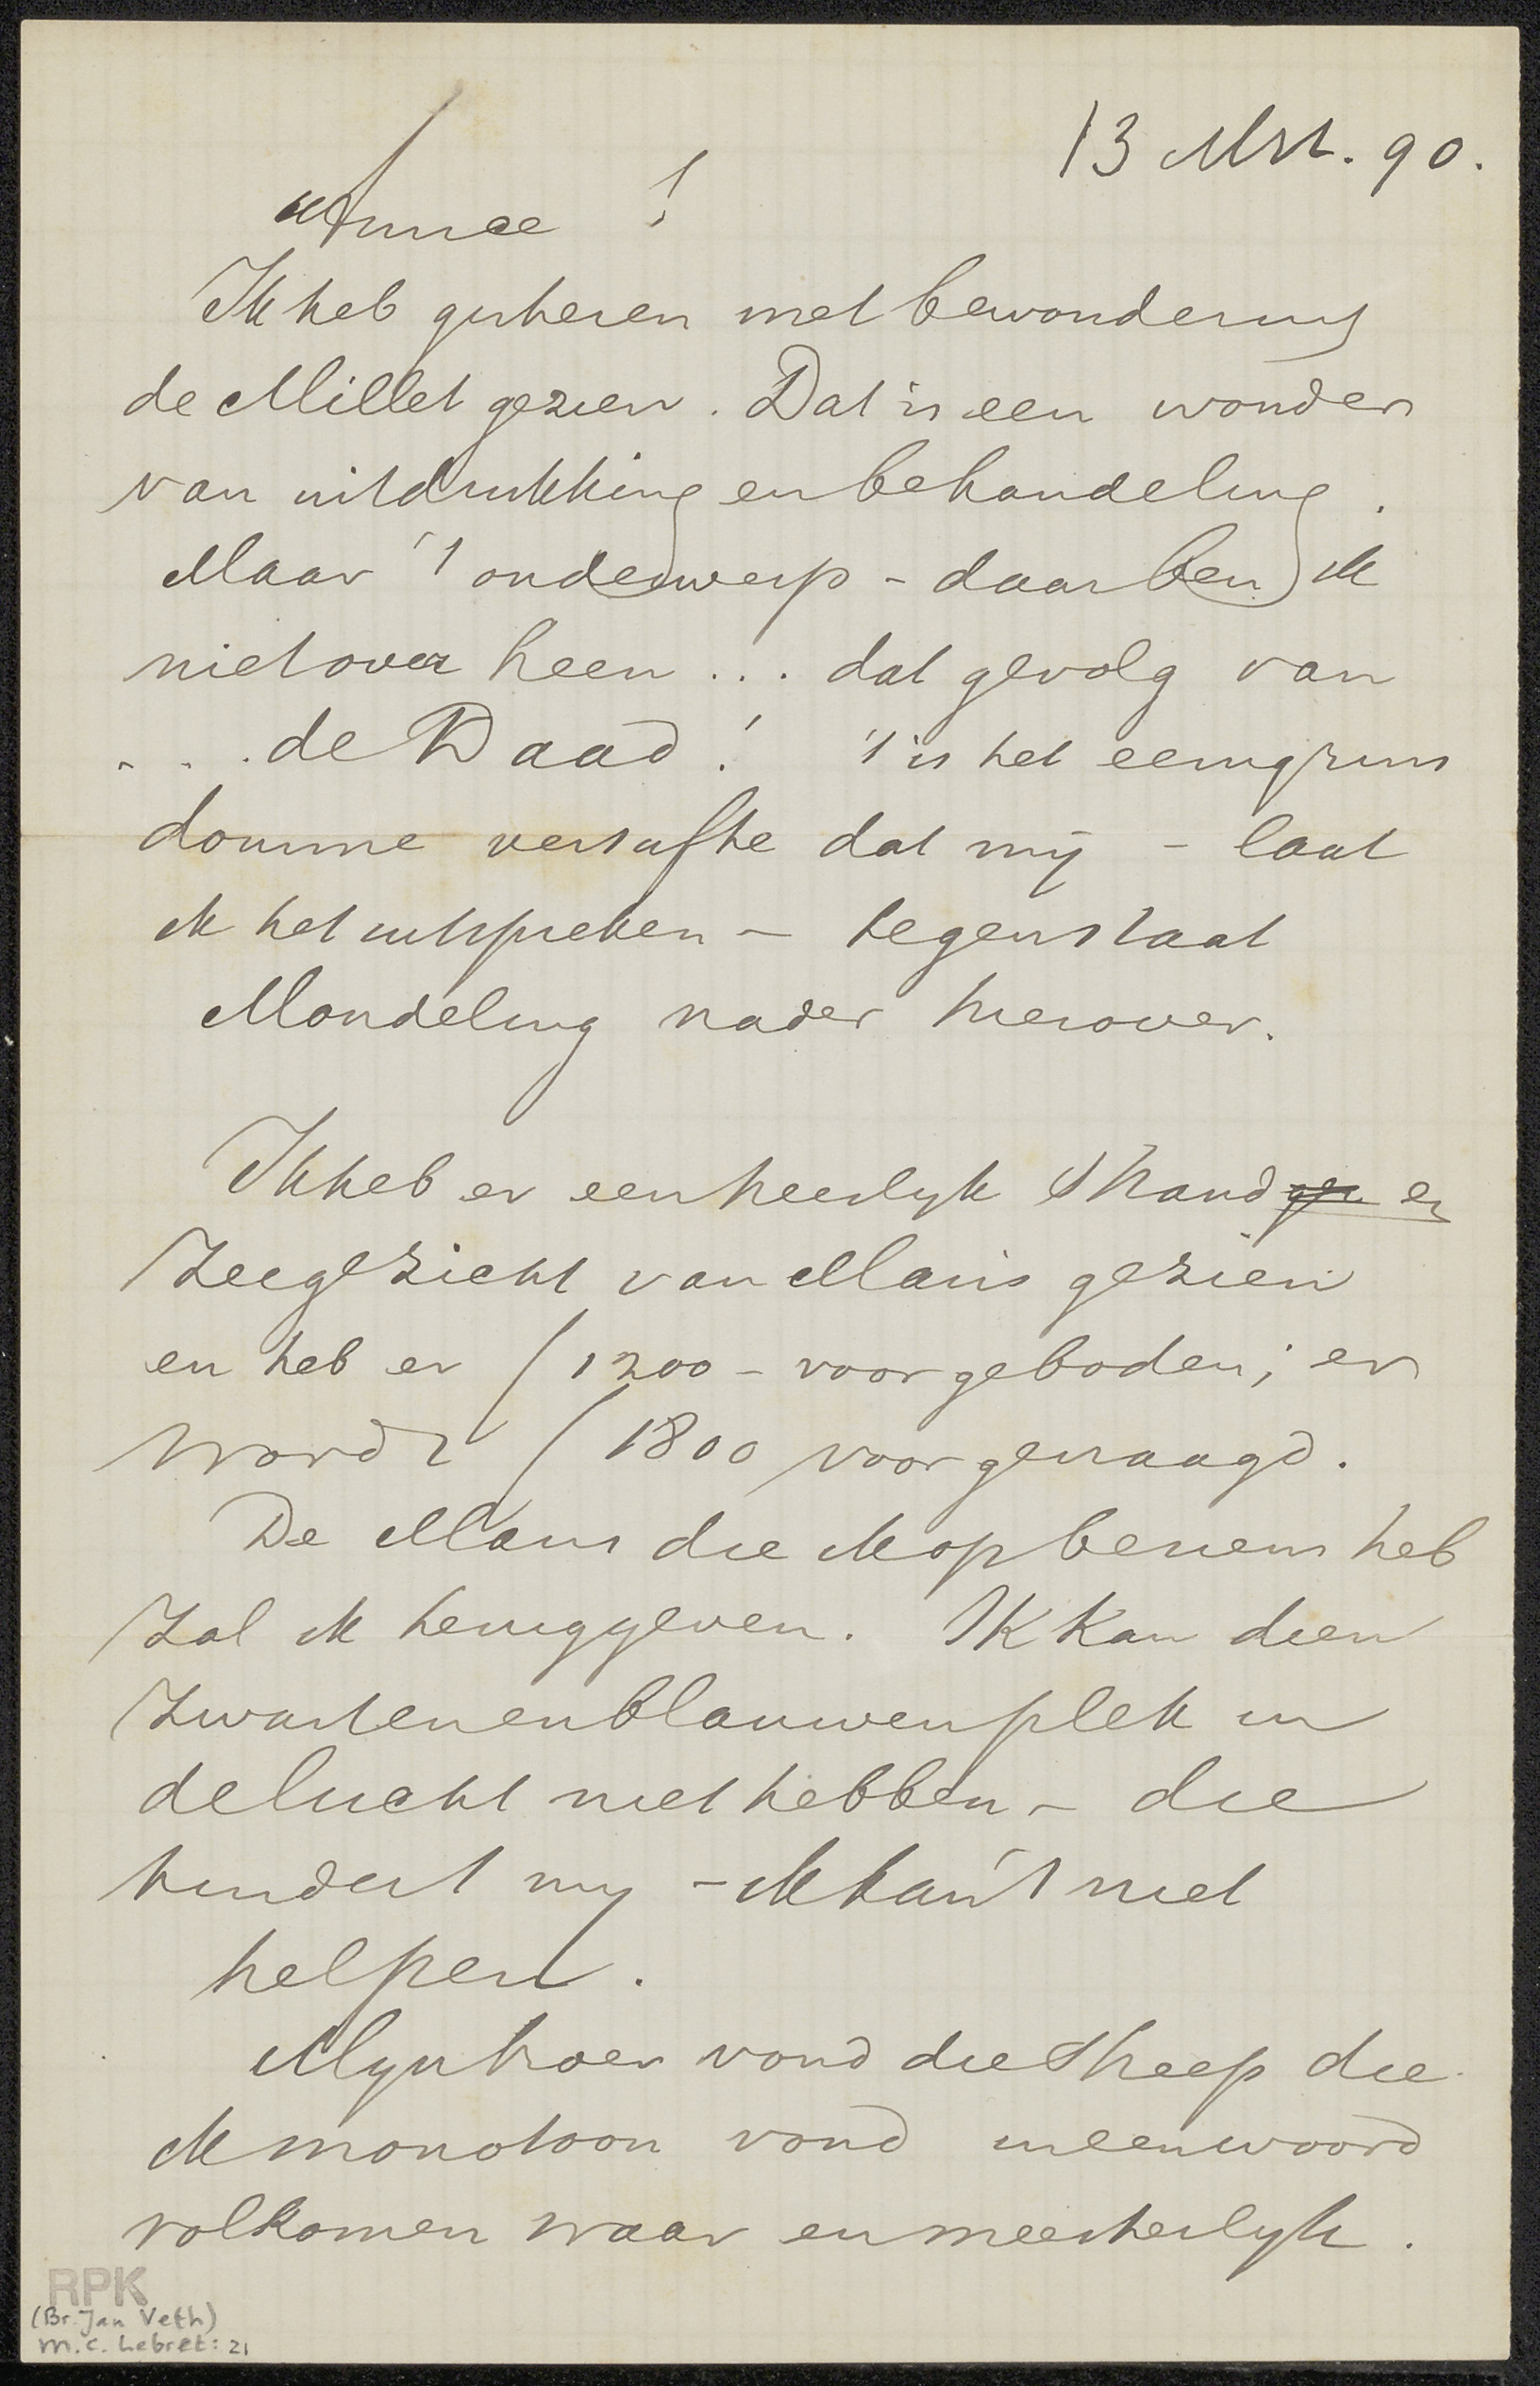 13 Mrt. 90.
Amice !
Ik heb gisteren met bewondering
de Millet gezien. Dat is een wonder
van uitdrukking en behandeling.
Maar 't onderwerp - daar ben ik
niet over heen ... dat gevolg van
... de Daad! 't is het eenigzins
domme versufte dat mij - laat
ik het uitspreken - tegenstaat
Mondeling nader hierover.
Ik heb er een heerlijk Strand en
Zeegezicht van Maris gezien
en heb er f 1200 - voor geboden; er
wordt f 1800 voor gevraagd.
De Maris die ik op
zal ik teruggeven. Ik kan dien
zwarten en blauwen plek in
de lucht niet hebben - die
hindert mij - ik kan 't niet
helpen.
Mijn broer vond die streep die
ik monotoon vond in een woord
volkomen waar en meesterlijk.
RPK
(Br. Jan Veth)
M.C. Lebret: 21